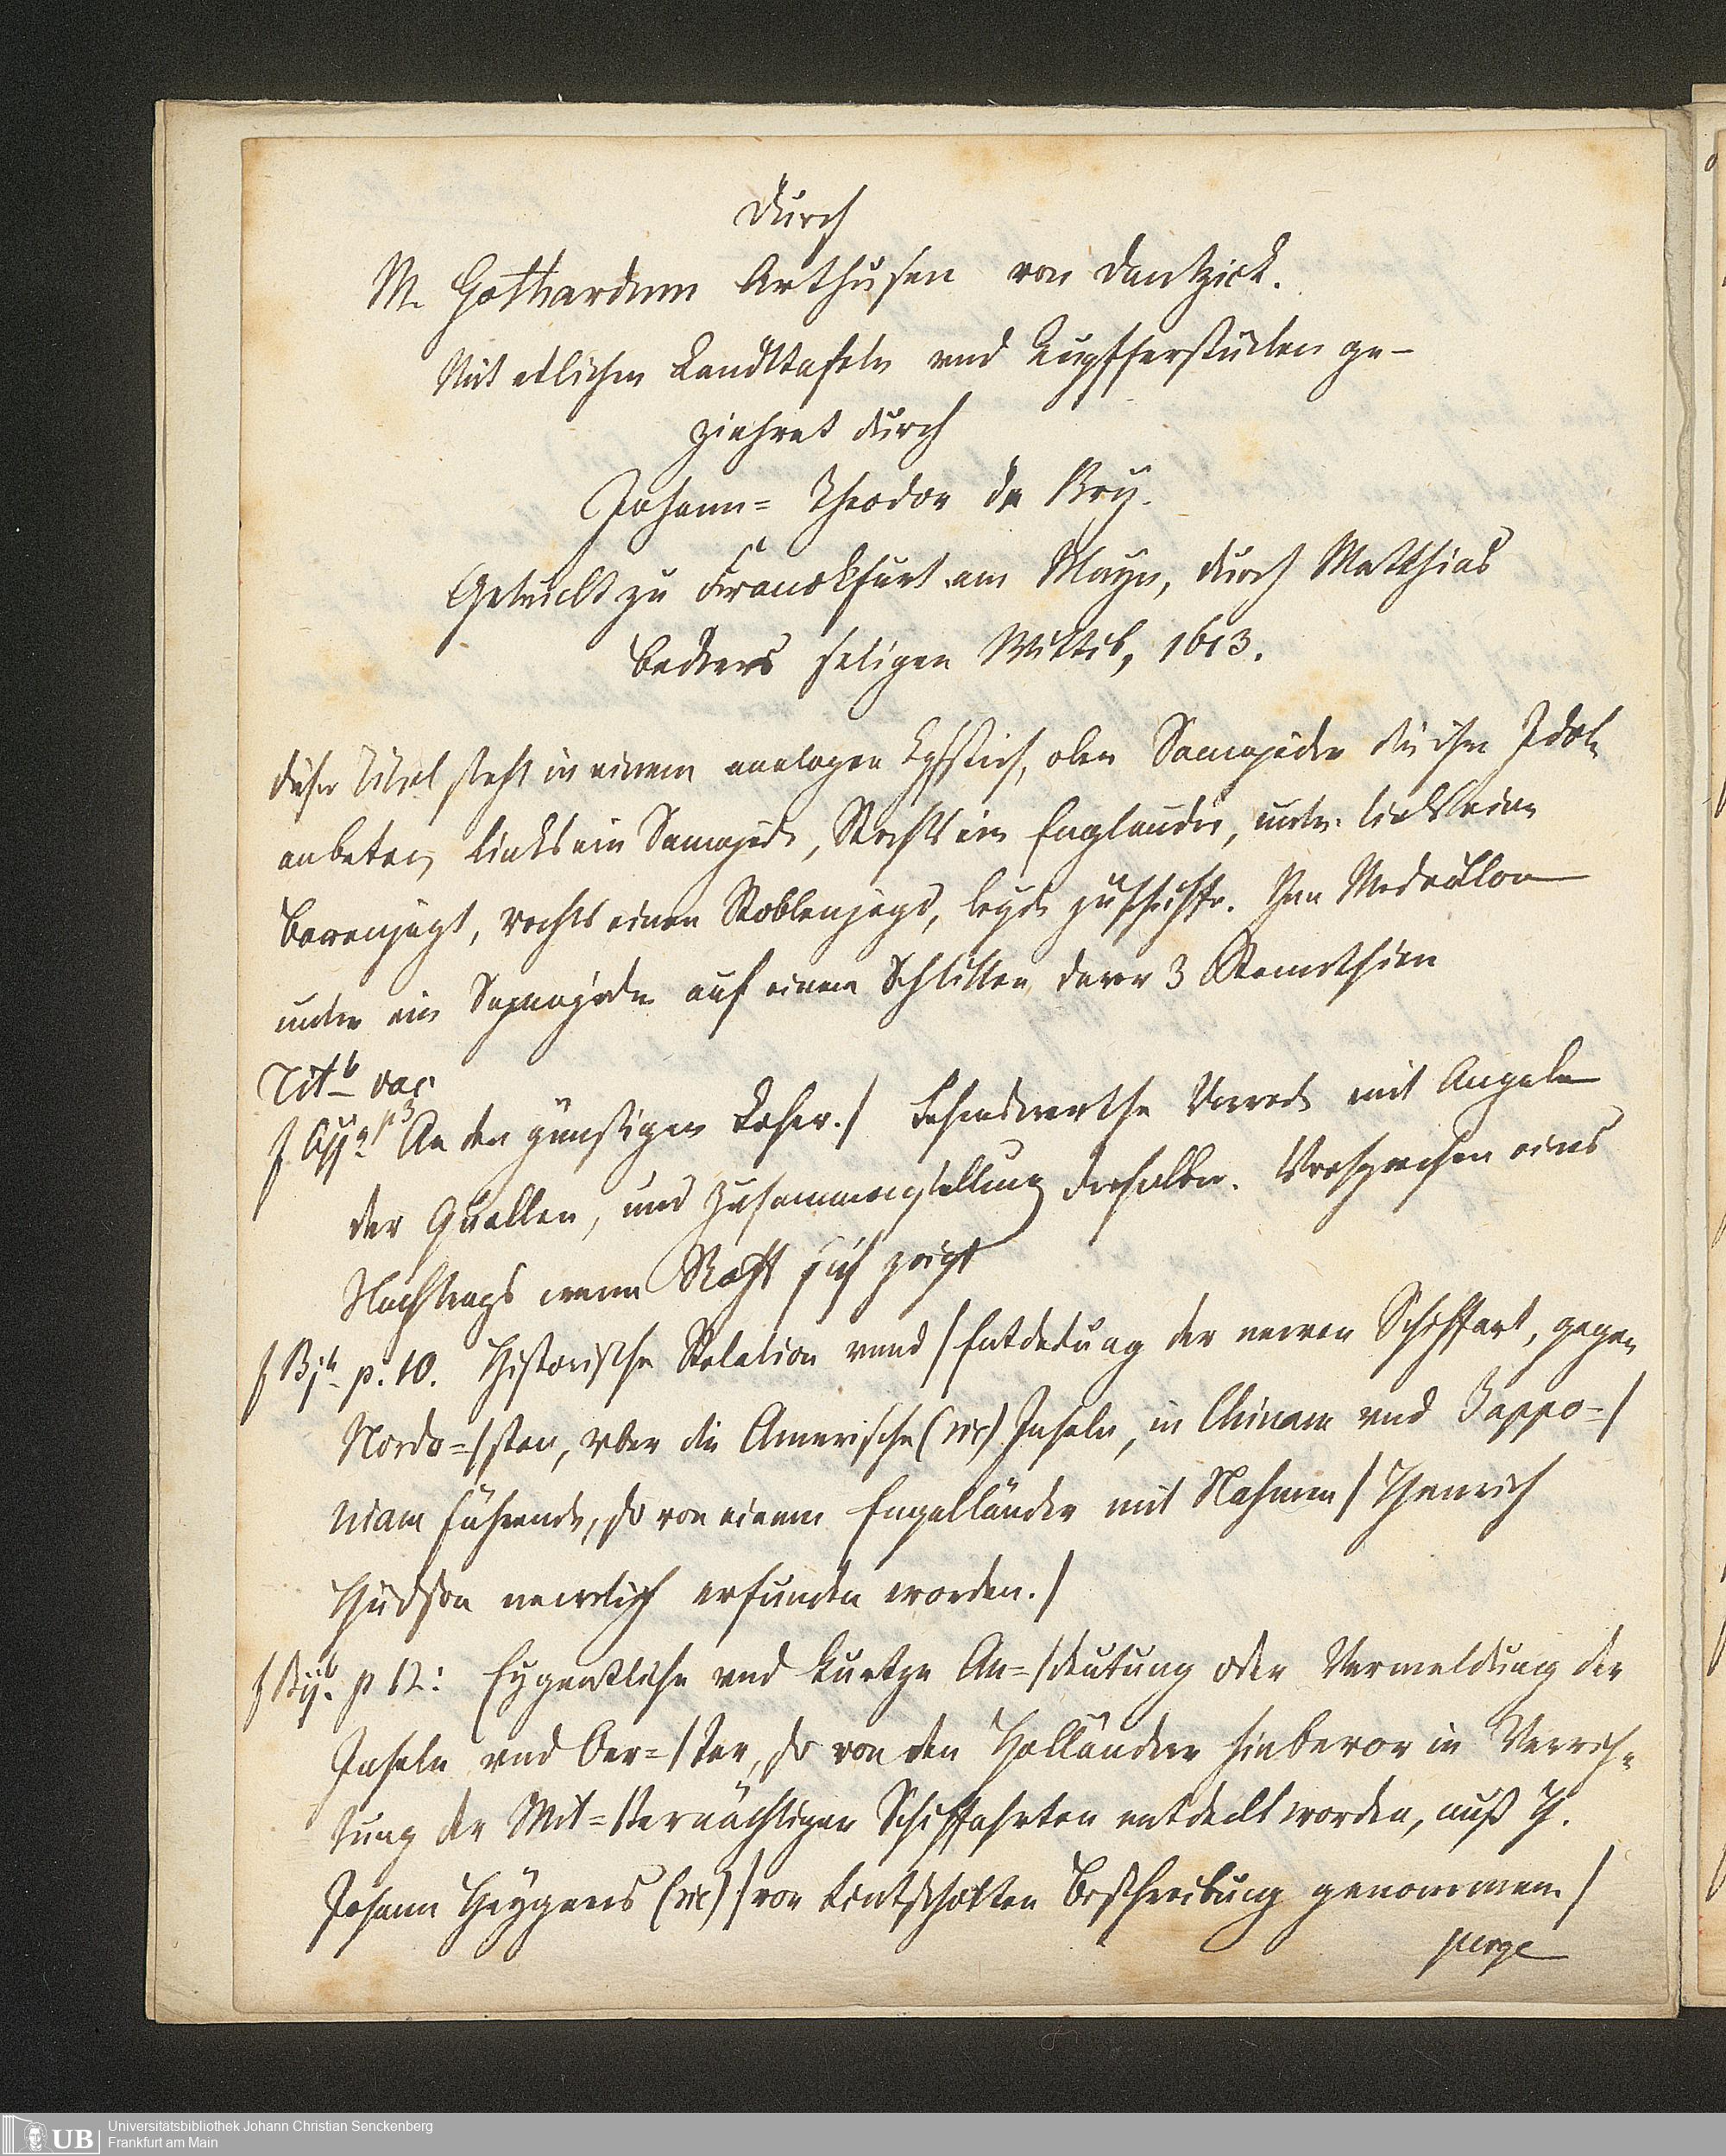 Durch
M. Gothardum Arthusen von Dantzick.
Mit etlichen Landttafeln vnd Kupfferstücken ge-
ziehret durch
Johann= Theodor de Bry.
Getruckt zu Franckfurt am Mayn, durch Matthias
Beckers seligen Wittib, 1613.
Dieser Titel steht in einem analogen Kpfstich, oben Samojeden die ihre Idole
anbeten, links ein Samojede, Rechts ein Engländer, unten links eine
Bärenjagt, rechts eine Robbenjagd, beyde zu Schiffe. Im Medaillon
unten ein Samojede auf einem Schlitten davor 3 Rennthiere
Tit b vac
f Aij a p 3 An den günstigen Leser./ Lesenswerthe Vorrede mit Angabe
der Quellen, und Zusammenstellung derselben. Versprechen eines
Nachtrags wenn Stoff sich zeigt
f Bj b p. 10. Historische Relation vnnd / Entdeckung der newen Schiffart, gegen
Nordo=/sten, vber die Amerische (sic) Inseln, in Chinam vnd Jappo=/
niam führende, so von einem Engelländer mit Nahmen / Henrich
Hudson newlich erfunden worden./
f Bij b. p 12: Eygentliche vnd kurtze An=/deutung oder Vermeldung der
Inseln vnd Oer=/ter, so von den Holländern hiebevor in Verrich=
tung der Mit=/ternächtigen Schiffahrten entdeckt worden, auß H.
Johann Heygens (sic) / von Lintschotten Beschreibung genommen /
purge
Universitätsbibliothek Johann Christian Senckenberg
Frankfurt am Main
UB